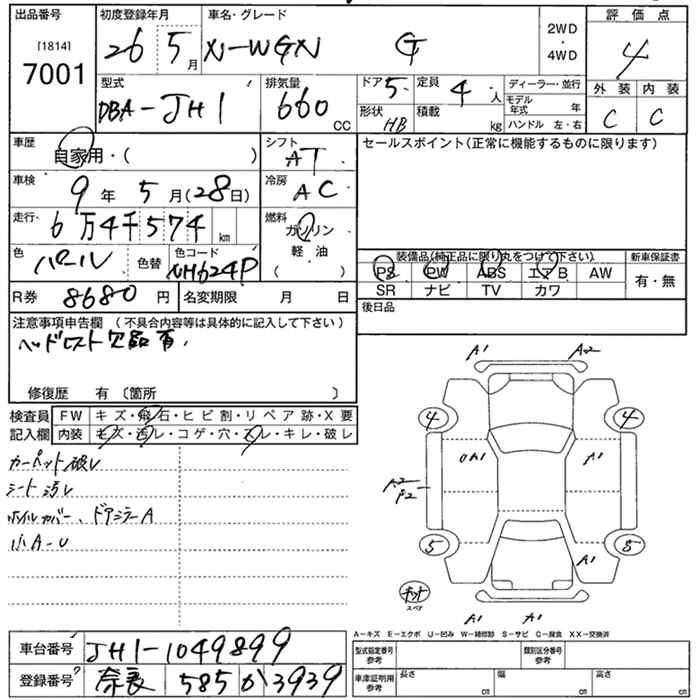 出品番号 初度登録年月 車名・グレード 2WD・4WD 評価点
[1814] 7001 26 5月 N-WGN G 4
型式 DBA-JH1 排気量 660 CC ドア 5 定員 4人 ディーラー・並行 外装 内装
形状 HB 積載 kg モデル年式 年 ハンドル 左・右 C C
車歴 自家用・( ) シフト AT セールスポイント(正常に機能するものに限ります)
車検 9年 5月(28日) 冷房 AC
走行 6万4千574 km 燃料 ガソリン 軽油 ( )
色 パール 色替 色コード NH624P 装備品(純正品に限り丸をつけて下さい) 新車保証書
PS PW ABS エアB AW 有・無
SR ナビ TV カワ
R券 8680円 名変期限 月 日 後日品
注意事項申告欄 (不具合内容等は具体的に記入して下さい)
ヘッドレスト欠品有
修復歴 有 〔箇所 〕
検査員 FW キズ・飛石・ヒビ割・リペア跡・X要
記入欄 内装 キズ・汚レ・コゲ・穴・スレ・キレ・破レ
カーペット破レ
シート汚レ
ホイルカバー、ドアミラーA
小A-U
A1 A2
4 4
A1 A1
A2
P2
5 5
A1
キット
スペア
A1 A1
A－キズ E－エクボ U－凹み W－補修跡 S－サビ C－腐食 XX－交換済
車台番号 JH1-1049899 型式指定番号 参考 類別区分番号 参考
登録番号 奈良 585 か 3939 車庫証明用 参考 長さ cm 幅 cm 高さ cm